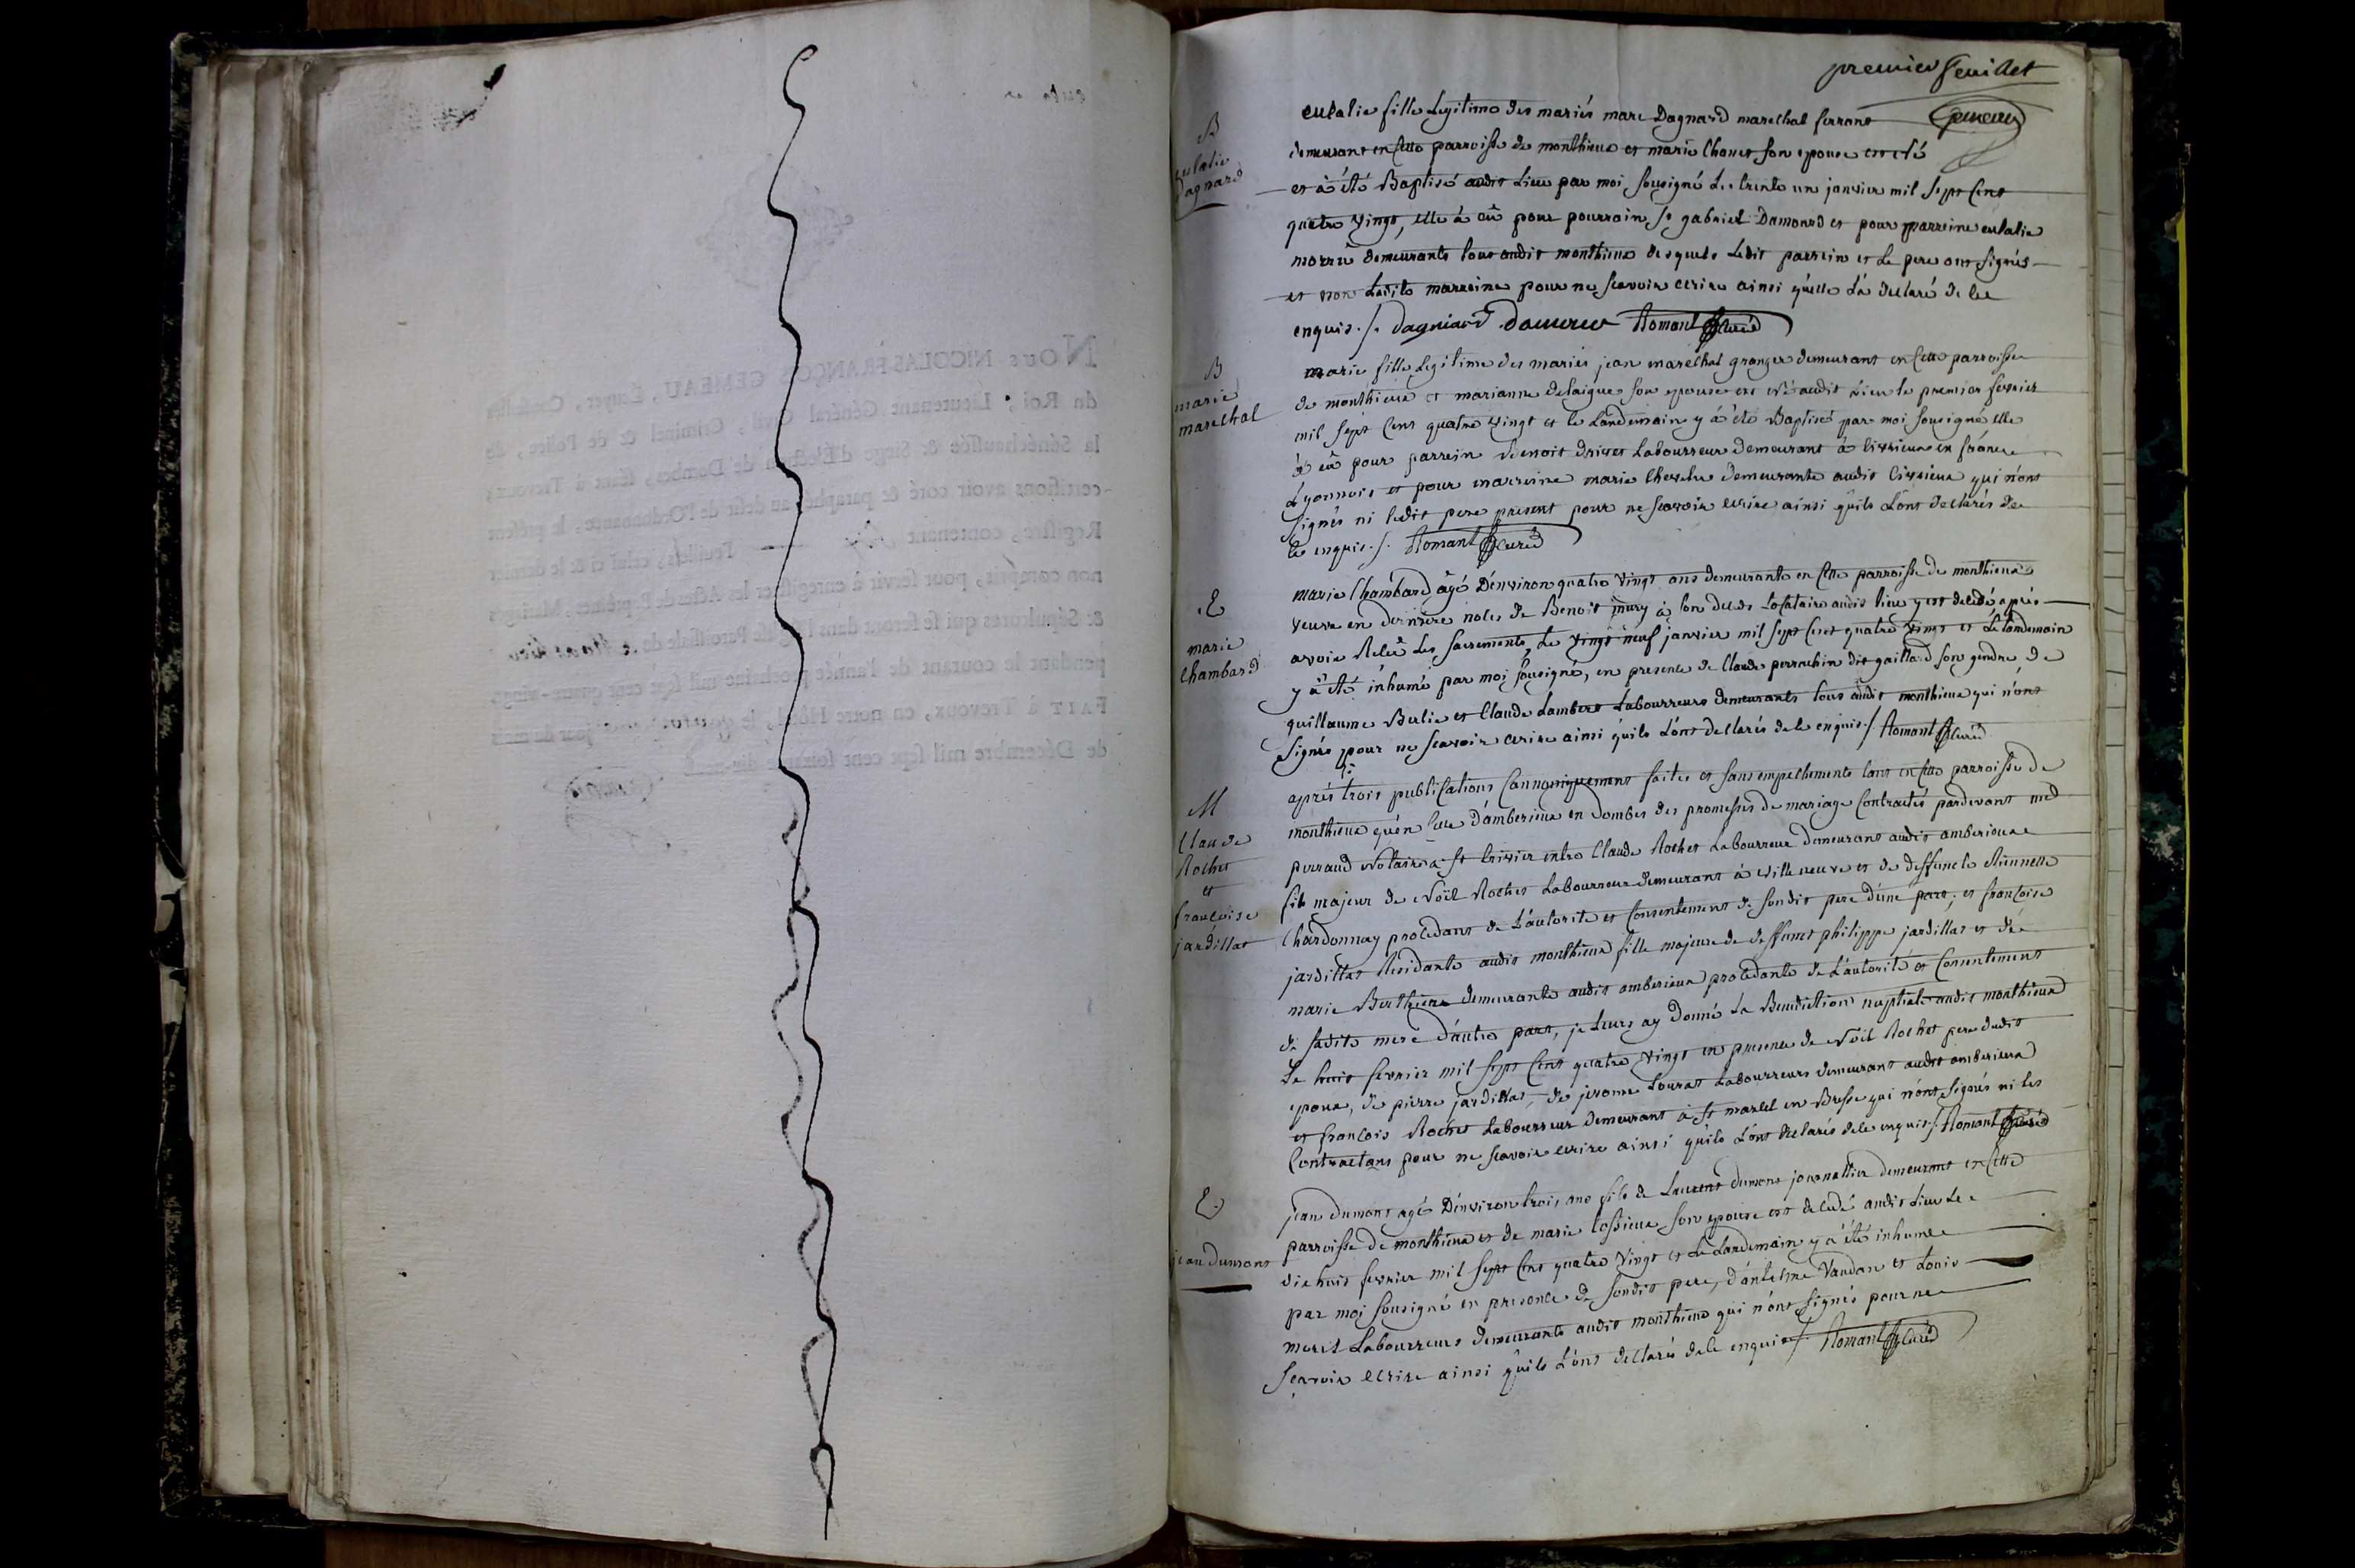 premier feuillet
B
eulalie
Dagnard
eulalie fille Legitime des mariés marc Dagnard marechal ferrant
demeurant en Cette parroisse de monthieux et marie Chanet son epouse est né
et à été Baptisé audit Lieu par moi sousigné Le trente un janvier mil sept Cent
quatre vingt, elle à eû pour parrain Sr gabriel Damond et pour marreine eulalie
demeurants tous audit monthieux desquels Ledit parrein et Le pere ont signés
et non Ladite marreine pour ne scavoir ecrire ainsi qu'elle L'a declaré de Ce
enquis ./. Dagniard Romant curé
B
marie
marechal
marie fille Legitime des mariés jean marechal granger demeurant en Cette parroisse
de monthieux et marianne delaigue son epouse est né audit Lieu le premier fevrier
mil sept Cent quatre vingt et le Landemain y à été Baptisé par moi sousigné elle
à eû pour parrein Benoit Labourreur demeurant à Civrieux en franc
Lyonnois et pour marreine marie demeurante audit Civrieux qui n'ont
signés ni ledit pere present pour ne scavoir ecrire ainsi qu'ils L'ont declarés de
Ce enquis ./. Romant curé
E
marie
Chambard
marie Chambard agé D'environ quatre vingt ans demeurante en Cette parroisse de monthieux
veuve en derniere noces de Benoit mury à son deces Locataire audit lieu y est decedé après
avoir Recû Les sacrements, Le vingt neuf janvier mil sept Cent quatre vingt et Le landemain
y à été inhumé par moi sousigné, en presence de Claude perrachin dit gaillard son gendre, de
guillaume Berlie et Claude Lambert Labourreurs demeurants tous audit monthieux qui n'ont
signés pour ne scavoir ecrire ainsi qu'ils L'ont declarés de Ce enquis ./. Romant curé
M
Claude
Rochet
et
françoise
jardillat
après trois publications Cannoniquement faites et sans empechements tant en Cette parroisse de
monthieux qu'en Celle d'amberieux en Dombes des promesses de mariage Contractés pardevant me
perraud Notaire a St trivier entre Claude Rochet Labourreur demeurant audit amberieux
fils majeur de Noël Rochet Labourreur demeurant à villeneuve et de deffuncte etiennette
Chardonnay procedant de L'autorité et Consentement de sondit pere d'une part; et françoise
jardillat Residante audit monthieux fille majeure de deffunct philippe jardillat et de
marie Berthier demeurante audit amberieux procedante de L'autorité et Consentement
de sadite mere d'autre part, je Leurs ay Donné La Benediction nuptiale audit monthieux
Le huit fevrier mil sept Cent quatre vingt en presence de Noël Rochet pere dudit
epoux, de pierre jardillat, de jerome Louras Labourreurs demeurant audit amberieux
et francois Rochet Labourreur demeurant à St marcel en Bresse qui n'ont signés ni les
Contractans pour ne scavoir ecrire ainsi qu'ils L'ont declarés de Ce enquis ./. Romant curé
E.
jean dumont
jean dumont agé D'environ trois ans fils de Laurent dumont journallier demeurant en Cette
parroisse de monthieux et de marie son epouse est decedé audit Lieu Le
dix huit fevrier mil sept Cent quatre Vingt et Le Landemain y à été inhumé
par moi sousigné en presence de sondit pere, d'antelme Vaudan et Louis
moret Labourreurs demeurants audit monthieux qui n'ont signés pour ne
scavoir ecrire ainsi qu'ils L'ont declarés de Ce enquis ./. Romant curé